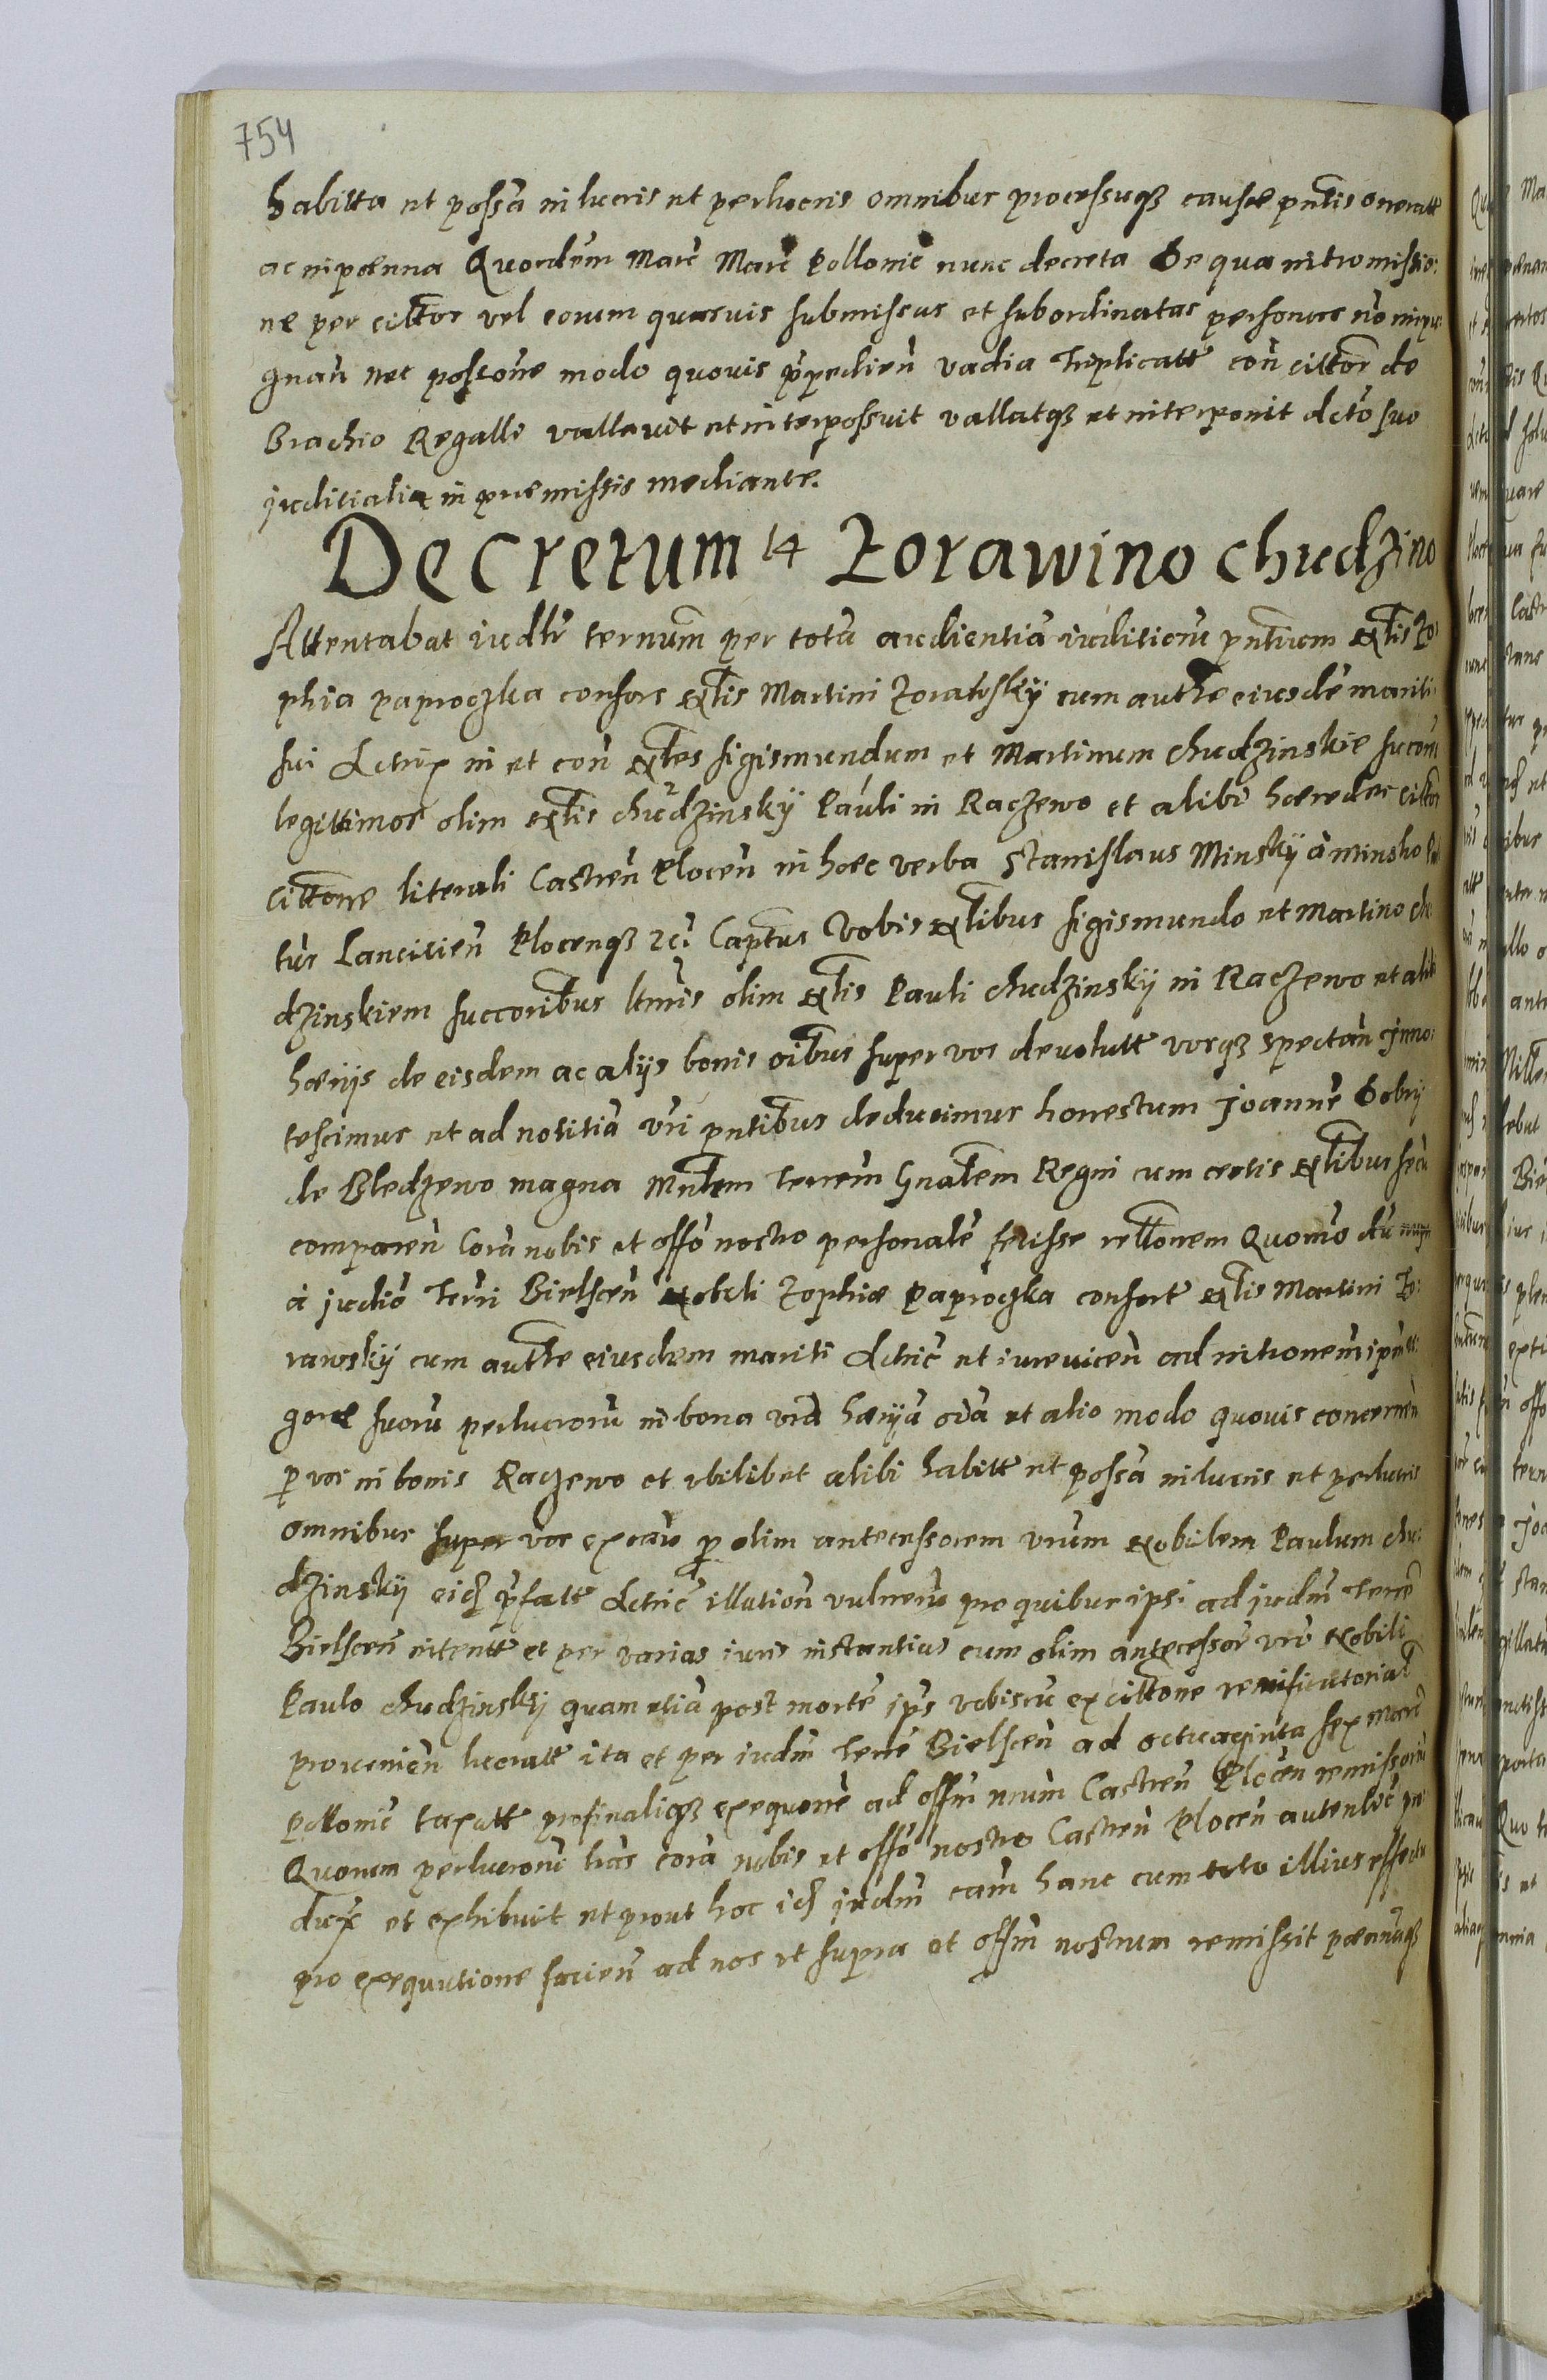 754
habitta et possa in lucris et perlucris omnibus processuqz causæ pntis oneratt
ac in pœnna Quordem Marc Marc Pollonic nunc decreta De qua intromissio:
ne per cittos vel eorum quasvis submissas et subordinatas personas no impu
gnan nec possone modo quovis ppedien vadia triplicatt con cittos de
Brachio Regalli vallavit et interpossuit vallatqz et interponit dcto suo
juditialie in præmissis mediante.
Decretum 14 Zorawino Chudzino
Attentabat iudtr ternum per tota audientia iuditioru pntium Nlis Zo
phia paproczka consors Nlis Martini Zorawsky cum autthe eiusde mariti
sui Actrix in et con Nles sigismundum et Martinum chudzinskie succm
legittimos olim Nlis chudzinsky Pauli in Raczewo et alibi hæredes cittos
Cittone literali Castren Plocen in hæc verba Stanislaus Minsky a Minsko
tus Lancitien Plocenqz zc Captus Vobis Nlibus sigismundo et Martino chu
dzinskiem succoribus ltmis olim Nlis Pauli chudzinsky in Raczewo et alibi
hæriis de eisdem ac aliis bonis oibus super vos devolutt vosqz spectan Inno:
tescimus et ad notitia vri pntibus deducimus honestum Joanne Dobry
de Bledzewo magna Mnlem terrem Gnalem Regni cum certis Nlibus secu
comparen Cora nobis et offo nostro personale fecisse rellonem Quomo du nupe
a judio terri Bielscen Nobili Zophiæ Paproczka consort Nlis Martini Zo:
rawsky cum autthe eiusdem mariti Actric et iurevicen ad intronem ipius
goræ suoru perlucroru in bona vra hæriia oia et alio modo quovis concernen
p vos in bonis Raczewo et vbilibet alibi habitt et possa in lucris et perlucris
omnibus super vos ex cau p olim antecessorem vrum Nobilem Paulum chu:
dzinsky eid pfatt Actric illation vulneru pro quibus ipsi ad judm terre
Bielscen intentt et per varias iuris instantias cum olim antecessor vro Nobili
Paulo chudzinsky quam etia post morte ips vobiscu ex cittone remificatorial
provenien lucratt ita et per iudm terre Bielscen ad octuaginta sex marc
Pollonic taxatt profinaliqz exequone ad offm nrum Castren Plocen remissoriu
Quorum perlucroru lras cora nobis et offo nostro Castren Plocen autentic pro
dux et exhibuit et prout hoc id judm cam hanc cum toto illius effectu
pro exequutione facien ad nos vt supra et offm nostrum remissit pœnaqz